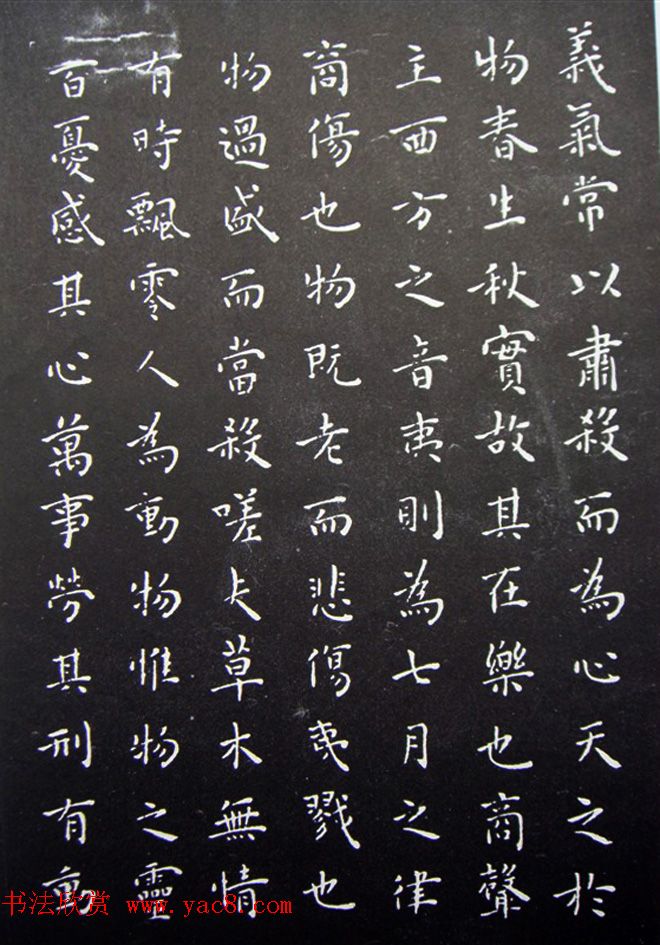 義氣常以肅殺而為心天之於
物春生秋實故其在樂也商聲
主西方之音夷則為七月之律
商傷也物既老而悲傷夷戮也
物過盛而當殺嗟夫草木無情
有時飄零人為動物惟物之靈
百憂感其心萬事勞其刑有動
书法欣赏 www.yac8.com